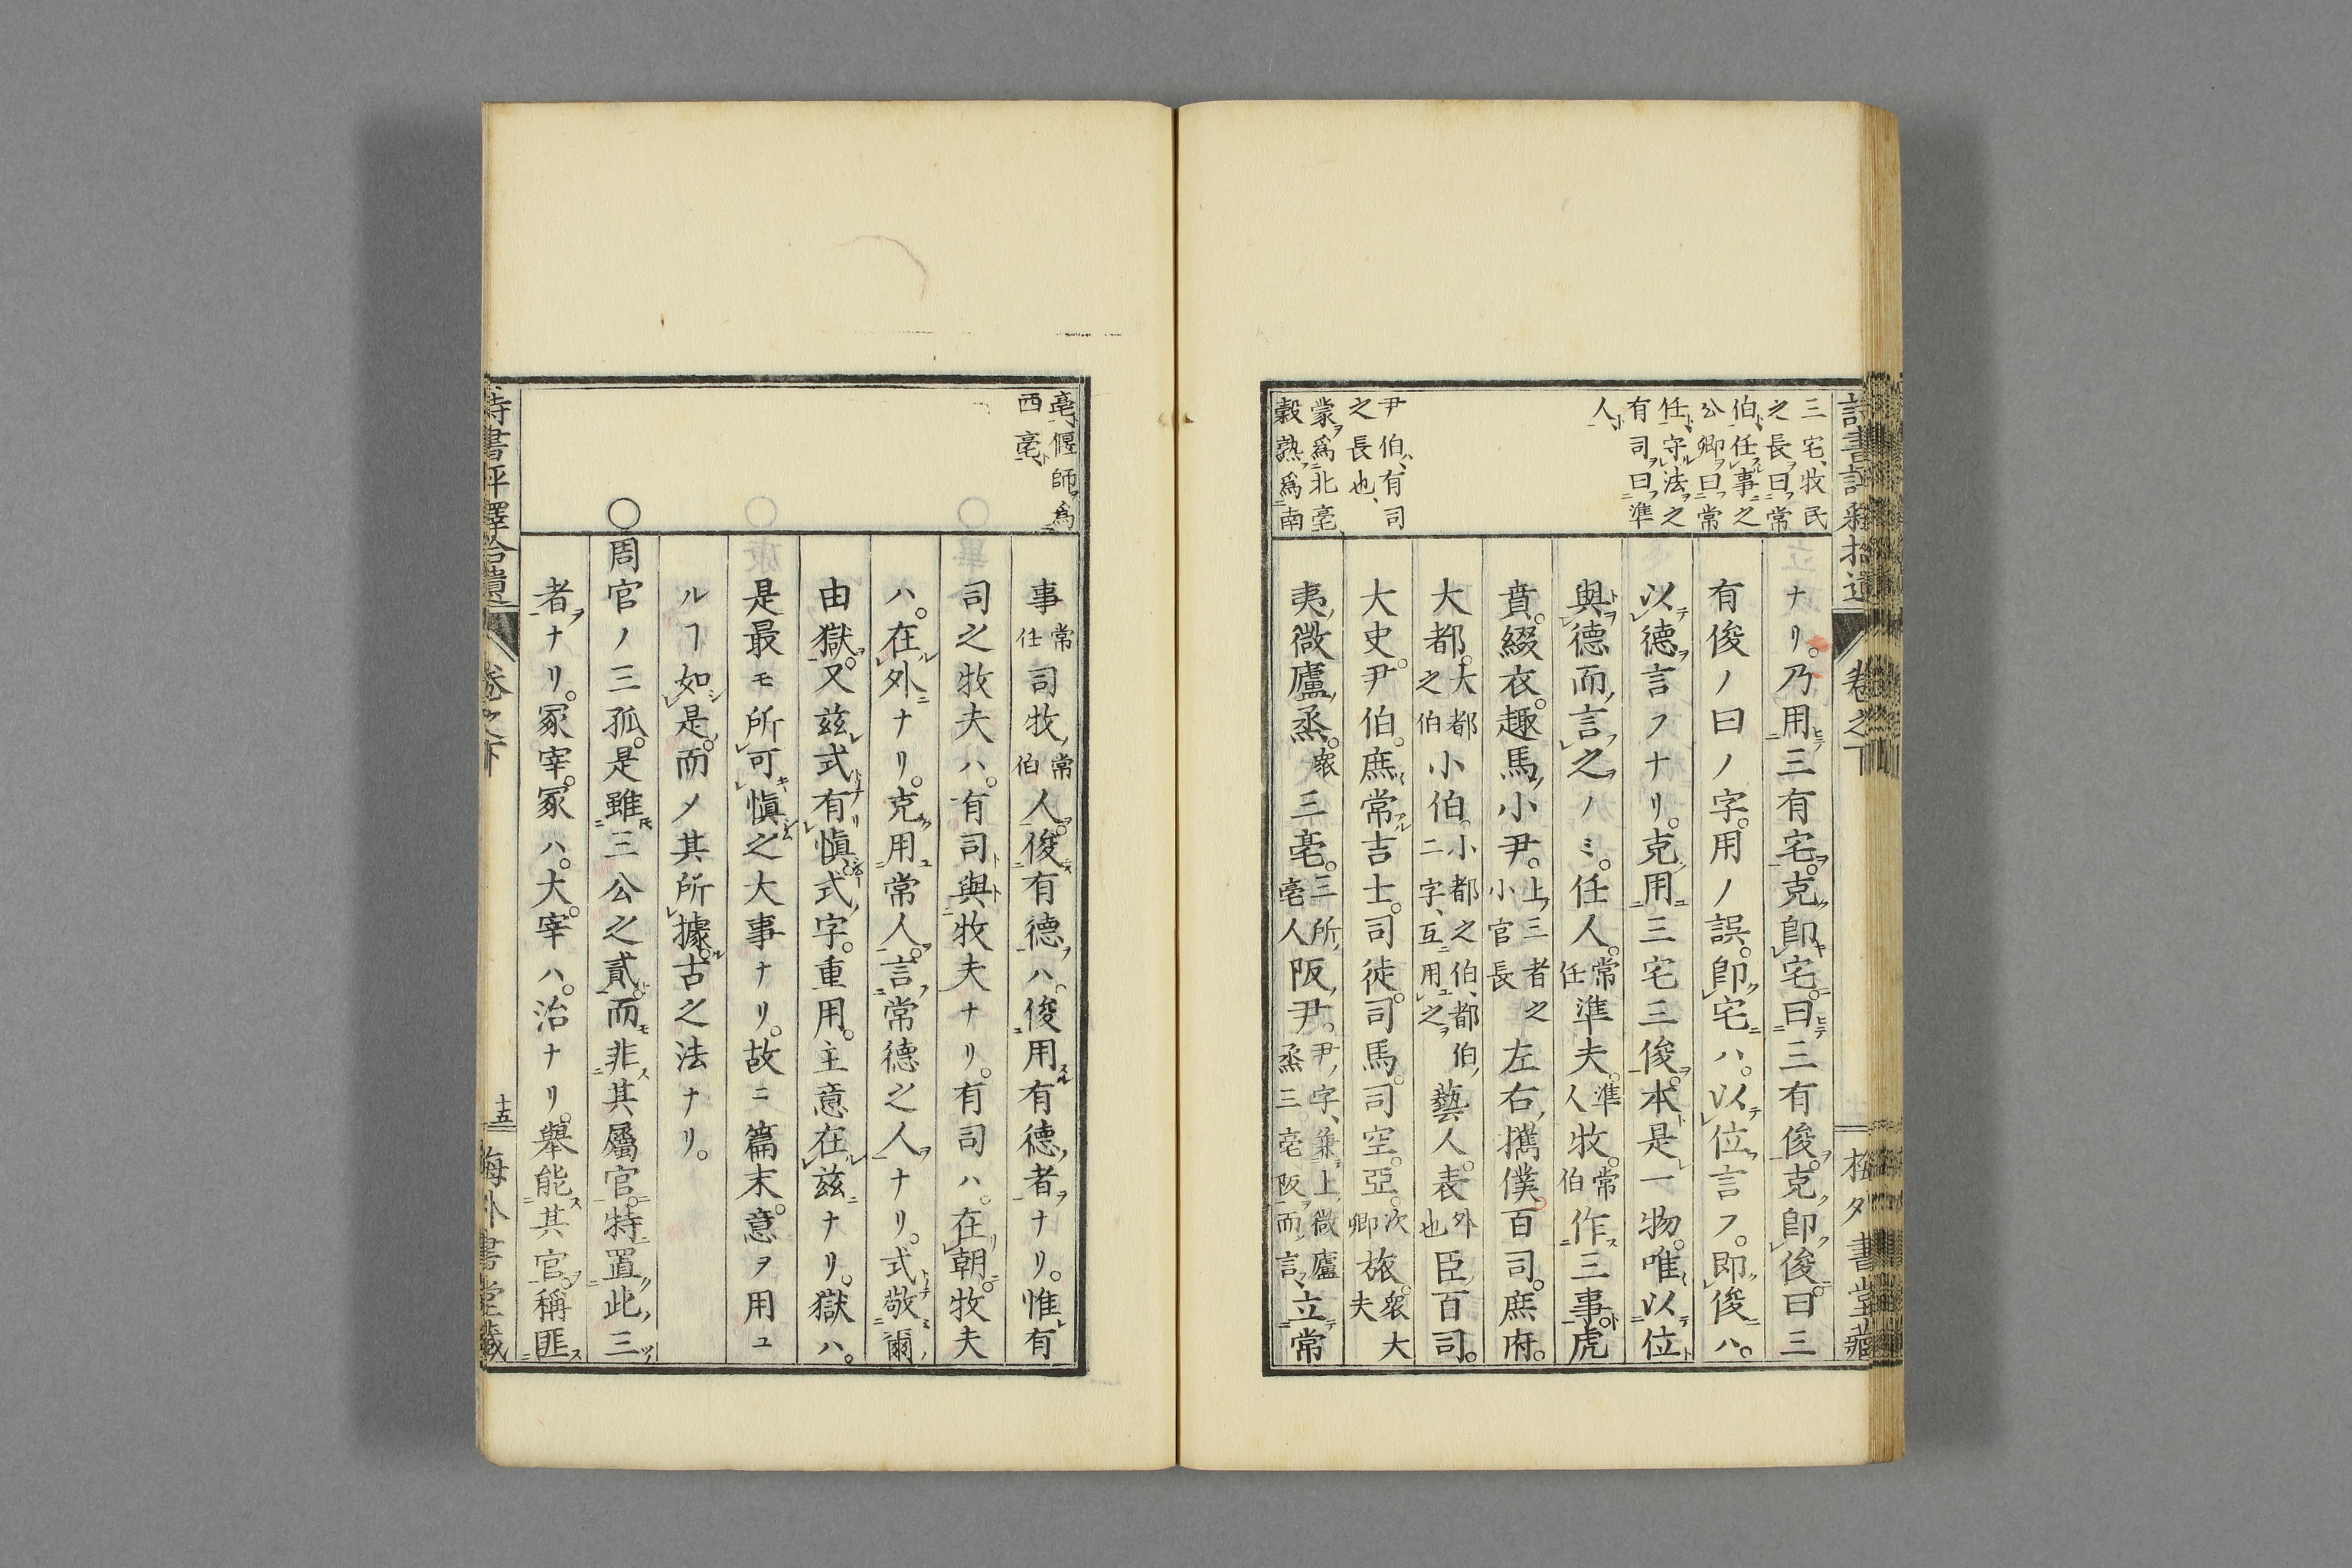 三宅、牧民
之長曰常
伯、任事之
公卿曰常
任、守法之
有司曰準
人
尹伯、有司
之長也、
蒙為北亳
穀熟為南
ナリ。乃用三有宅。克卽宅。曰三有俊。克卽俊。曰三
有俊ノ曰ノ字。用ノ誤。卽宅ハ。以位言フ。卽俊ハ。
以德言フナリ。克用三宅三俊。本是一物。唯以位
與德而言之ノミ。任人。常任準夫。準人牧。常伯作三事。虎
賁。綴衣。趣馬小尹。上三者之小官長左右攜僕。百司。庶府。
大都。大都之伯小伯。小都之伯、都伯二字、互用之藝人。表外也臣百司。
大史。尹伯。庶常吉士。司徒。司馬。司空。亞。次卿旅。衆大夫
夷微廬烝。衆三亳。三所亳人阪尹。尹字、兼上微廬烝三亳阪而言、立常
亳偃師為
西亳
事常任司牧常伯人。俊有德ハ。俊用有德者ナリ。惟有
司之牧夫ハ。有司與牧夫ナリ。有司ハ。在朝。牧夫
ハ。在外ナリ。克用常人。言常德之人ナリ。式敬爾
由獄。又茲式有愼。式字。重用。主意在茲ナリ。獄ハ。
是最モ所可愼之大事ナリ。故ニ篇末。意ヲ用ユ
ルヿ如是。而メ其所據。古之法ナリ。
○周官ノ三孤。是雖三公之貳。而非其屬官。特置此三
者ナリ。冢宰。冢ハ。大。宰ハ。治ナリ。擧能其官。稱匪
卷之下
十五